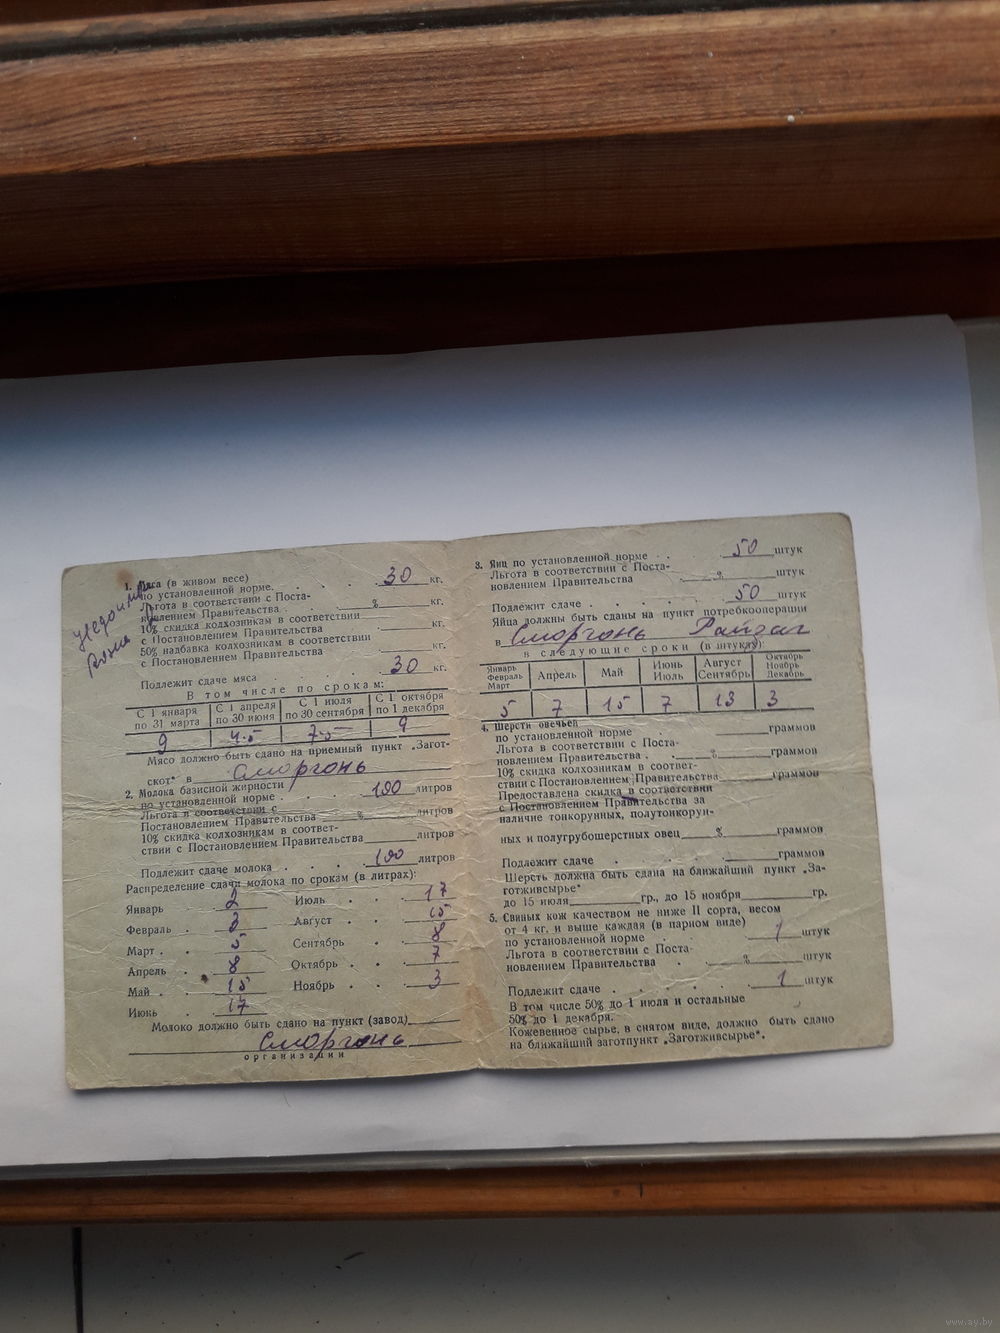 1. Мяса (в живом весе)
по установленной норме. . . . . 30 кг.
Льгота в соответствии с Поста-
новлением Правительства . . ____%____кг.
10% скидка колхозникам в соответствии
с Постановлением Правительства ____кг.
50% надбавка колхозникам в соответствии
с Постановлением Правительства ____кг.
Подлежит сдаче мяса . . . . . 30 кг.
В том числе по срокам:
С 1 января по 31 марта | С 1 апреля по 30 июня | С 1 июля по 30 сентября | С 1 октября по 1 декабря
9 | 4.5 | 7.5 | 9
Мясо должно быть сдано на приемный пункт „Загот-
скот" в Сморгонь
2. Молока базисной жирности
по установленной норме . . . . 100 литров
Льгота в соответствии с
Постановлением Правительства ____%____литров
10% скидка колхозникам в соответ-
ствии с Постановлением Правительства____литров
Подлежит сдаче молока . . . . 100 литров
Распределение сдачи молока по срокам (в литрах):
Январь . 2 Июль . . 17
Февраль . 3 Август . . 15
Март . . 5 Сентябрь . . 8
Апрель . 8 Октябрь . . 7
Май . . 15 Ноябрь . . 3
Июнь 17
Молоко должно быть сдано на пункт (завод)____
Сморгонь
организации
3. Яиц по установленной норме . . . 50 штук
Льгота в соответствии с Поста-
новлением Правительства ____%____штук
Подлежит сдаче . . . . . 50 штук
Яйца должны быть сданы на пункт потребкооперации
в Сморгонь Райзаг
в следующие сроки (в штуках):
Январь Февраль Март | Апрель | Май | Июнь Июль | Август Сентябрь | Октябрь Ноябрь Декабрь
5 | 7 | 15 | 7 | 13 | 3
4. Шерсти овечьей
по установленной норме . ____граммов
Льгота в соответствии с Поста-
новлением Правительства . ____%____граммов
10% скидка колхозникам в соответ-
ствии с Постановлением Правительства____граммов
Предоставлена скидка в соответствии
с Постановлением Правительства за
наличие тонкорунных, полутонкорун-
ных и полугрубошерстных овец____%____граммов
Подлежит сдаче . . . . ____граммов
Шерсть должна быть сдана на ближайший пункт „За-
готживсырье"
до 15 июля____гр., до 15 ноября____гр.
5. Свиных кож качеством не ниже II сорта, весом
от 4 кг. и выше каждая (в парном виде)
по установленной норме 1 штук
Льгота в соответствии с Поста-
новлением Правительства . . ____%____штук
Подлежит сдаче . . . . . . 1 штук
В том числе 50% до 1 июля и остальные
50% до 1 декабря.
Кожевенное сырье, в снятом виде, должно быть сдано
на ближайший заготпункт „Заготживсырье".
www.ay.by